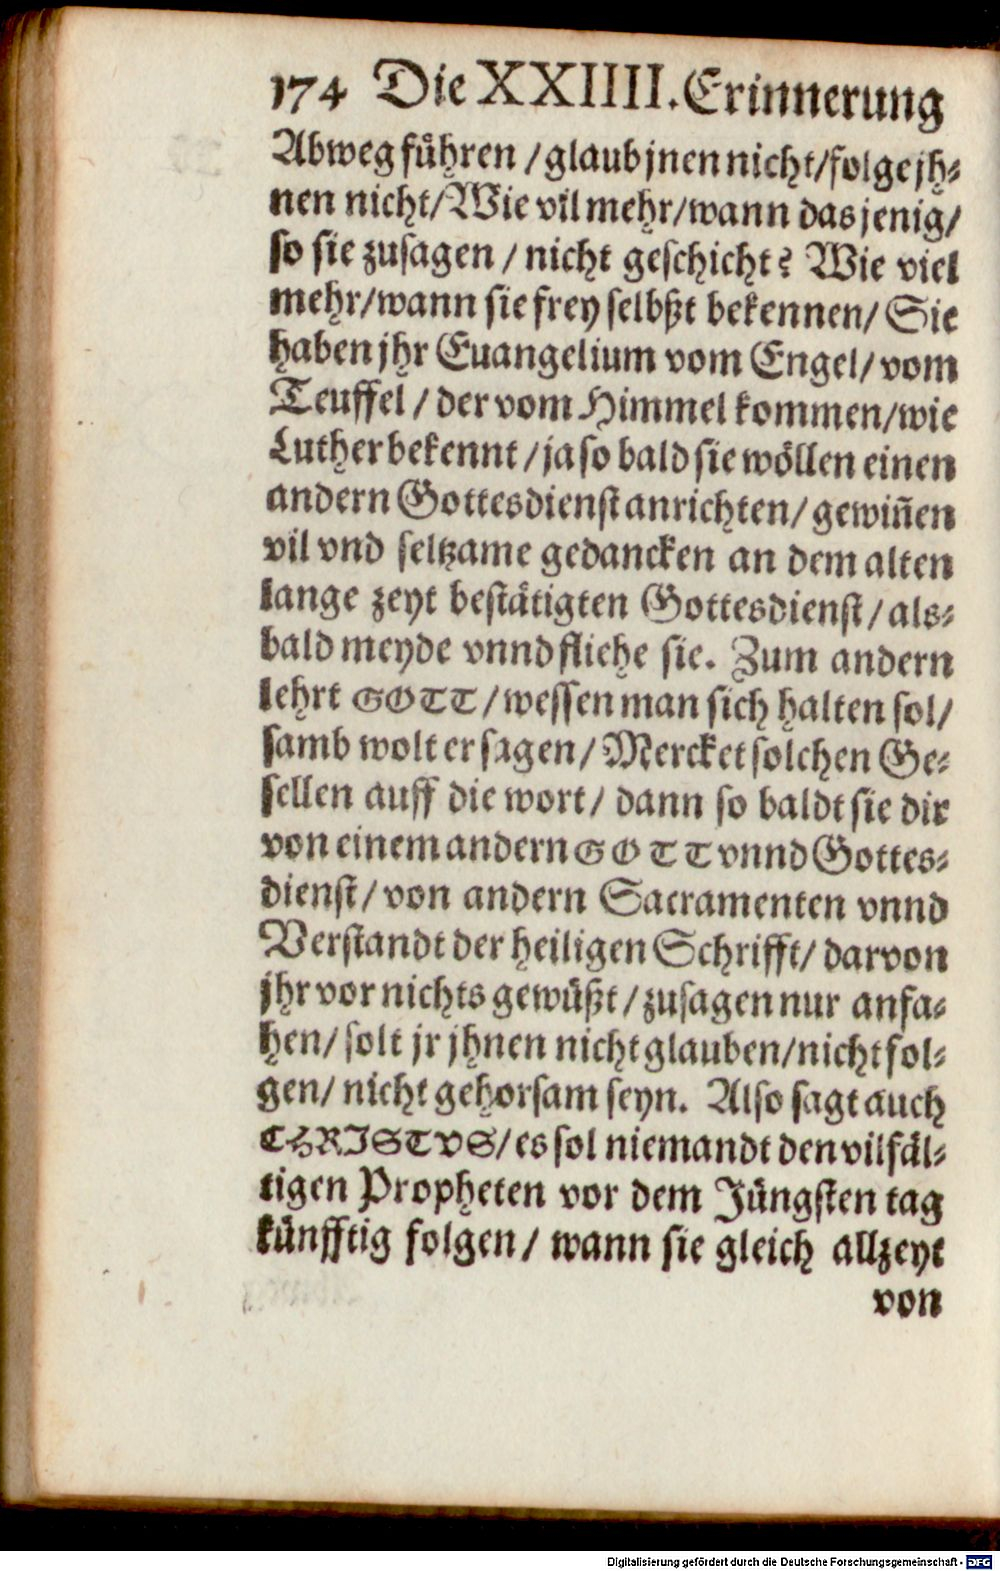 174 Die XXIIIII. Erinnerung
Abweg führen / glaub jnen nicht / folge jh⸗
nen nicht / Wie vil mehr / wann das jenig /
so sie zusagen / nicht geschicht? Wie viel
mehr / wann sie frey selbßt bekennen / Sie
haben jhr Euangelium vom Engel / vom
Teuffel / der vom Himmel kommen / wie
Luther bekennt / ja so bald sie wöllen einen
andern Gottesdienst anrichten / gewiñen
vil vnd seltzame gedancken an dem alten
lange zeyt bestätigten Gottesdienst / als⸗
bald meyde vnnd fliehe sie. Zum andern
lehrt GOTT / wessen man sich halten sol /
samb wolt er sagen / Mercket solchen Ge⸗
sellen auff die wort / dann so baldt sie dir
von einem andern GOTT vnnd Gottes⸗
dienst / von andern Sacramenten vnnd
Verstandt der heiligen Schrifft / darvon
jhr vor nichts gewüßt / zusagen nur anfa⸗
hen / solt jr jhnen nicht glauben / nicht fol⸗
gen / nicht gehorsam seyn. Also sagt auch
CHRISTVS / es sol niemandt den vilfäl⸗
tigen Propheten vor dem Jüngsten tag
künfftig folgen / wann sie gleich allzeyt
von
Digitalisierung gefördert durch die Deutsche Forschungsgemeinschaft - DFG